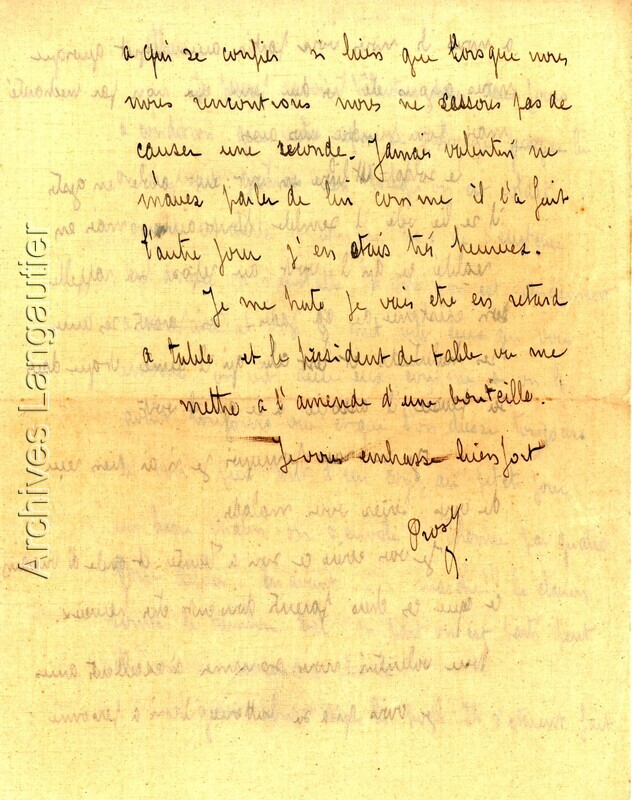 à qui se confier si bien que lorsque nous
nous rencontrons nous ne cessons pas de
causer une seconde. Jamais Valentin ne
m'avez parler de lui comme il l'a fait
l'autre jour j'en étais très heureux.
Je me hate je vais etre en retard
a table et le président de table va me
mettre a l'amende d'une bouteille.
Je vous embrasse bien fort
Archives Langautier